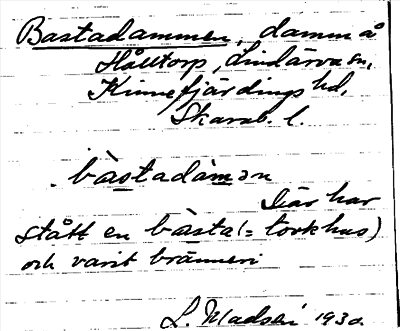 Bastadammen, damm å
Hålltorp, Lindärva sn,
Kinnefjärdings hd,
Skarab. l.
bàstadàmən
Där har
stått en bàsta (= torkhus)
och varit bränneri
L. Madsén 1930.